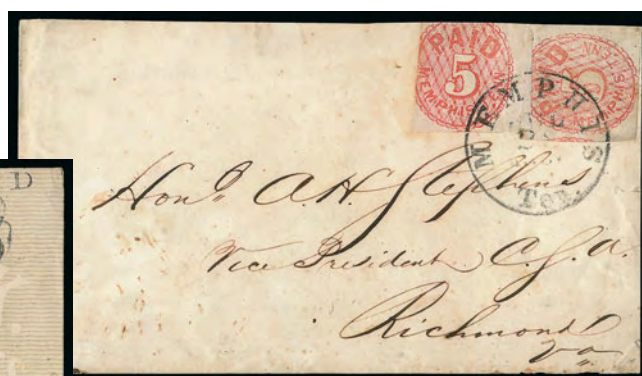 PAID
5
MEMPHIS TENN
PAID
5
MEMPHIS TENN
MEMPHIS
Ten.
D
Hon.d A. H. Stephens
Vice President C. S. A.
Richmond
Va